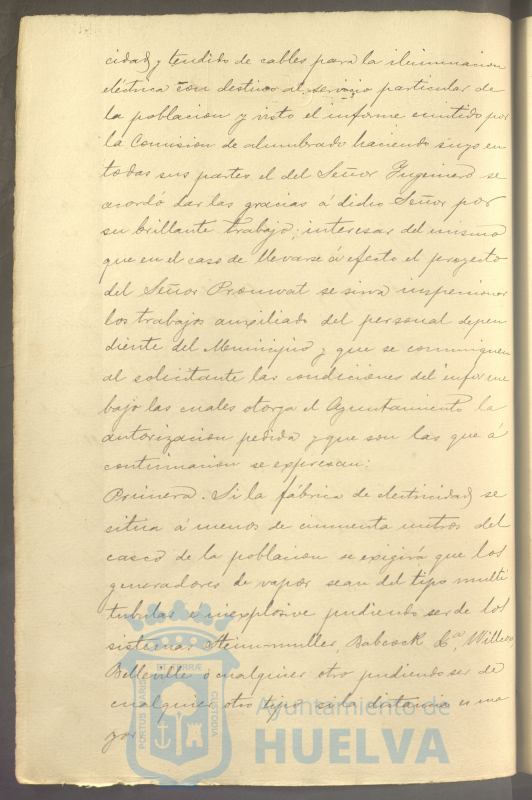 cidad y tendido de cables para la iluminacion
eléctrica con destino al servicio particular de
la poblacion y visto el informe emitido por
la Comision de alumbrado haciendo suyo en
todas sus partes el del Señor Yngeniero se
acordó dar las gracias á dicho Señor por
su brillante trabajo; interesar del mismo
que en el caso de llevarse á efecto el proyecto
del Señor se sirva inspeccionar
los trabajos auxiliado del personal depen
diente del Municipio y que se comuniquen
al solicitante las condiciones del informe
bajo las cuales otorga el Ayuntamiento la
autorizacion pedida y que son las que á
continuacion se expresan:
Primera. Si la fábrica de electricidad se
situa á menos de cincuenta metros del
casco de la poblacion se exigirá que los
generadores de vapor sean del tipo multi
tubulas é inexplosive pudiendo ser de los
sistemas Steinmuller, Babcock Cª, Willcox
Belleville ó cualquier otro pudiendo ser de
cualquier otro tipo si la distancia es ma
yor
PORTUS MARIS
ET TERRÆ
CUSTODIA
Ayuntamiento de
HUELVA